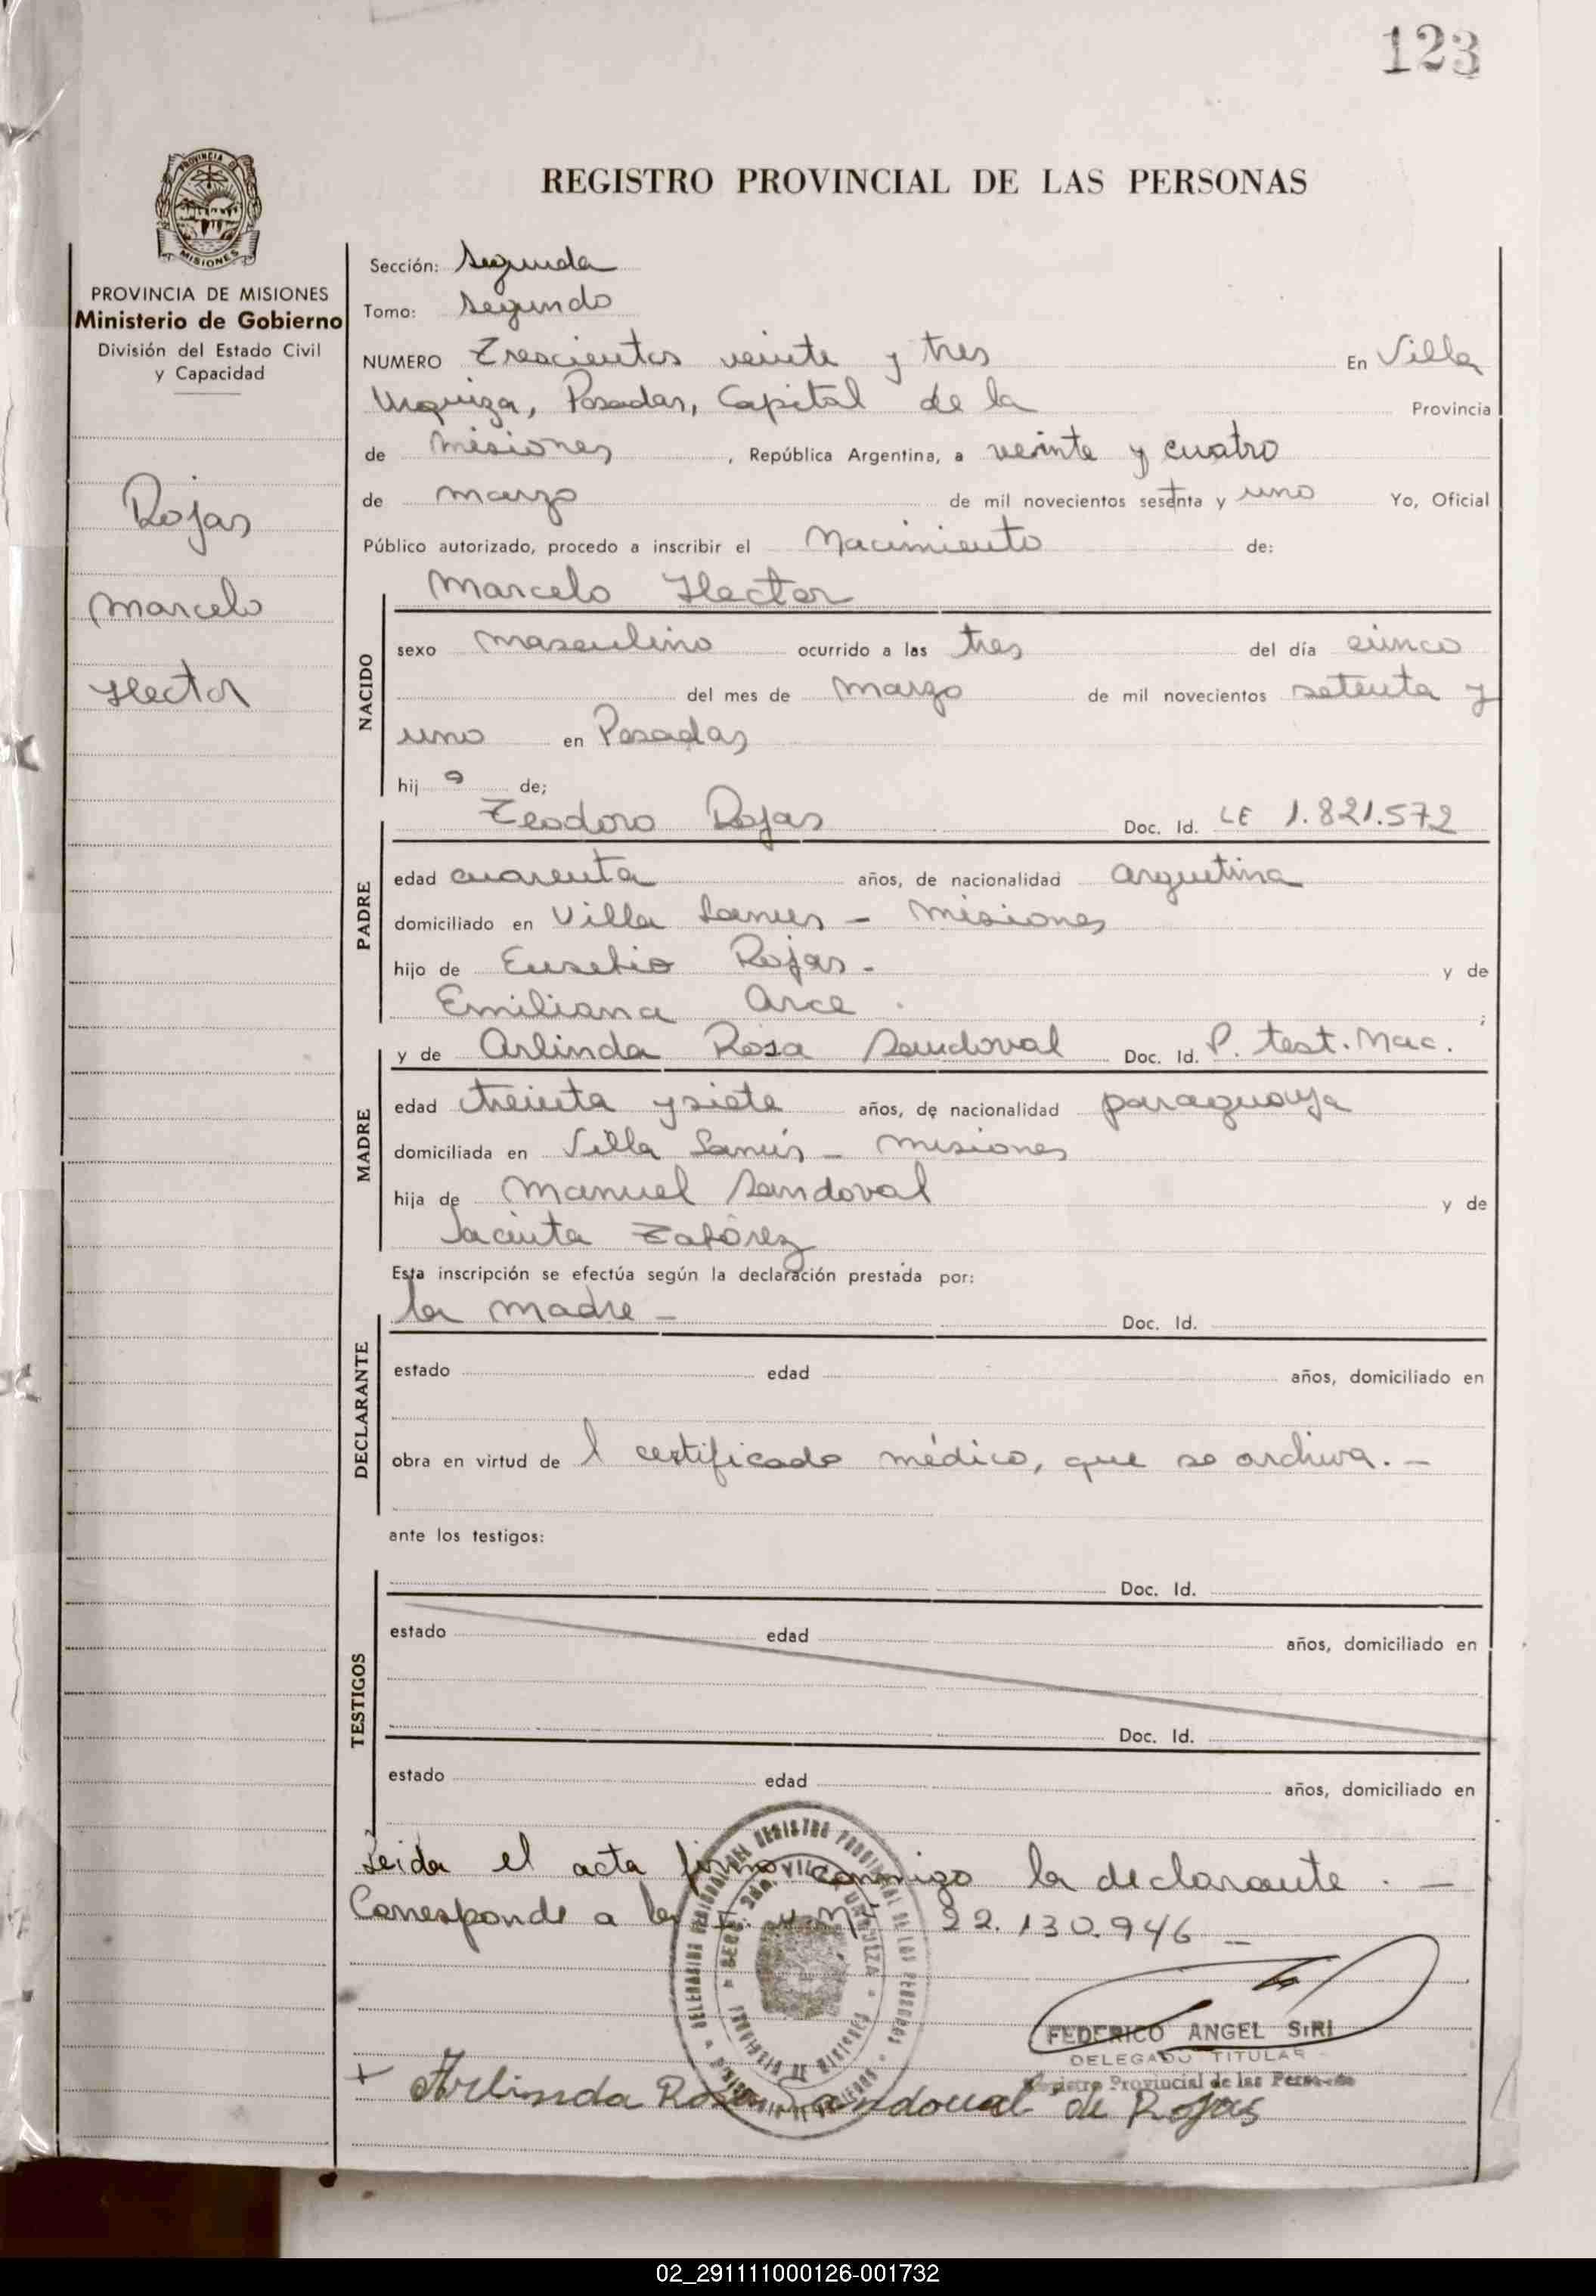 123
REGISTRO PROVINCIAL DE LAS PERSONAS
PROVINCIA DE MISIONES
Ministerio de Gobierno
División del Estado Civil
y Capacidad
Rojas
Marcelo
Hector
Sección: Segunda
Tomo: Segundo
NUMERO Trescientos veinte y tres En Villa
Urquiza, Posadas, Capital de la Provincia
de Misiones, República Argentina, a veinte y cuatro
de marzo de mil novecientos sesetnta y uno Yo, Oficial
Público autorizado, procedo a inscribir el Nacimiento de:
Marcelo Hector
NACIDO
sexo masculino ocurrido a las tres del día cinco
del mes de Marzo de mil novecientos setenta y
uno en Posadas
hijo de;
Teodoro Rojas Doc. Id. LE 1.821.572
PADRE
edad cuarenta años, de nacionalidad argentina
domiciliado en Villa Lanus - Misiones
hijo de Eusebio Rojas. y de
Emiliana Arce.;
y de Arlinda Rosa Sandoval Doc. Id. P. test. Nac.
MADRE
edad treinta y siete años, de nacionalidad paraguaya
domiciliada en Villa Lanús - Misiones
hija de Manuel Sandoval y de
Jacinta
Esta inscripción se efectúa según la declaración prestada por:
la madre - Doc. Id.
DECLARANTE
estado edad años, domiciliado en
obra en virtud de l certificado médico, que se archiva. -
ante los testigos:
Doc. Id.
TESTIGOS
estado edad años, domiciliado en
Doc. Id.
estado edad años, domiciliado en
Leida el acta firma conmigo la declarante. -
Corresponde a la 22.130.946 -
SECC. 2da. VILLA URQUIZA
PROVINCIA DE MISIONES
FEDERICO ANGEL SIRI
DELEGADO TITULAR
Registro Provincial de las Personas
+ Arlinda Rosa Sandoval de Rojas
02_291111000126-001732